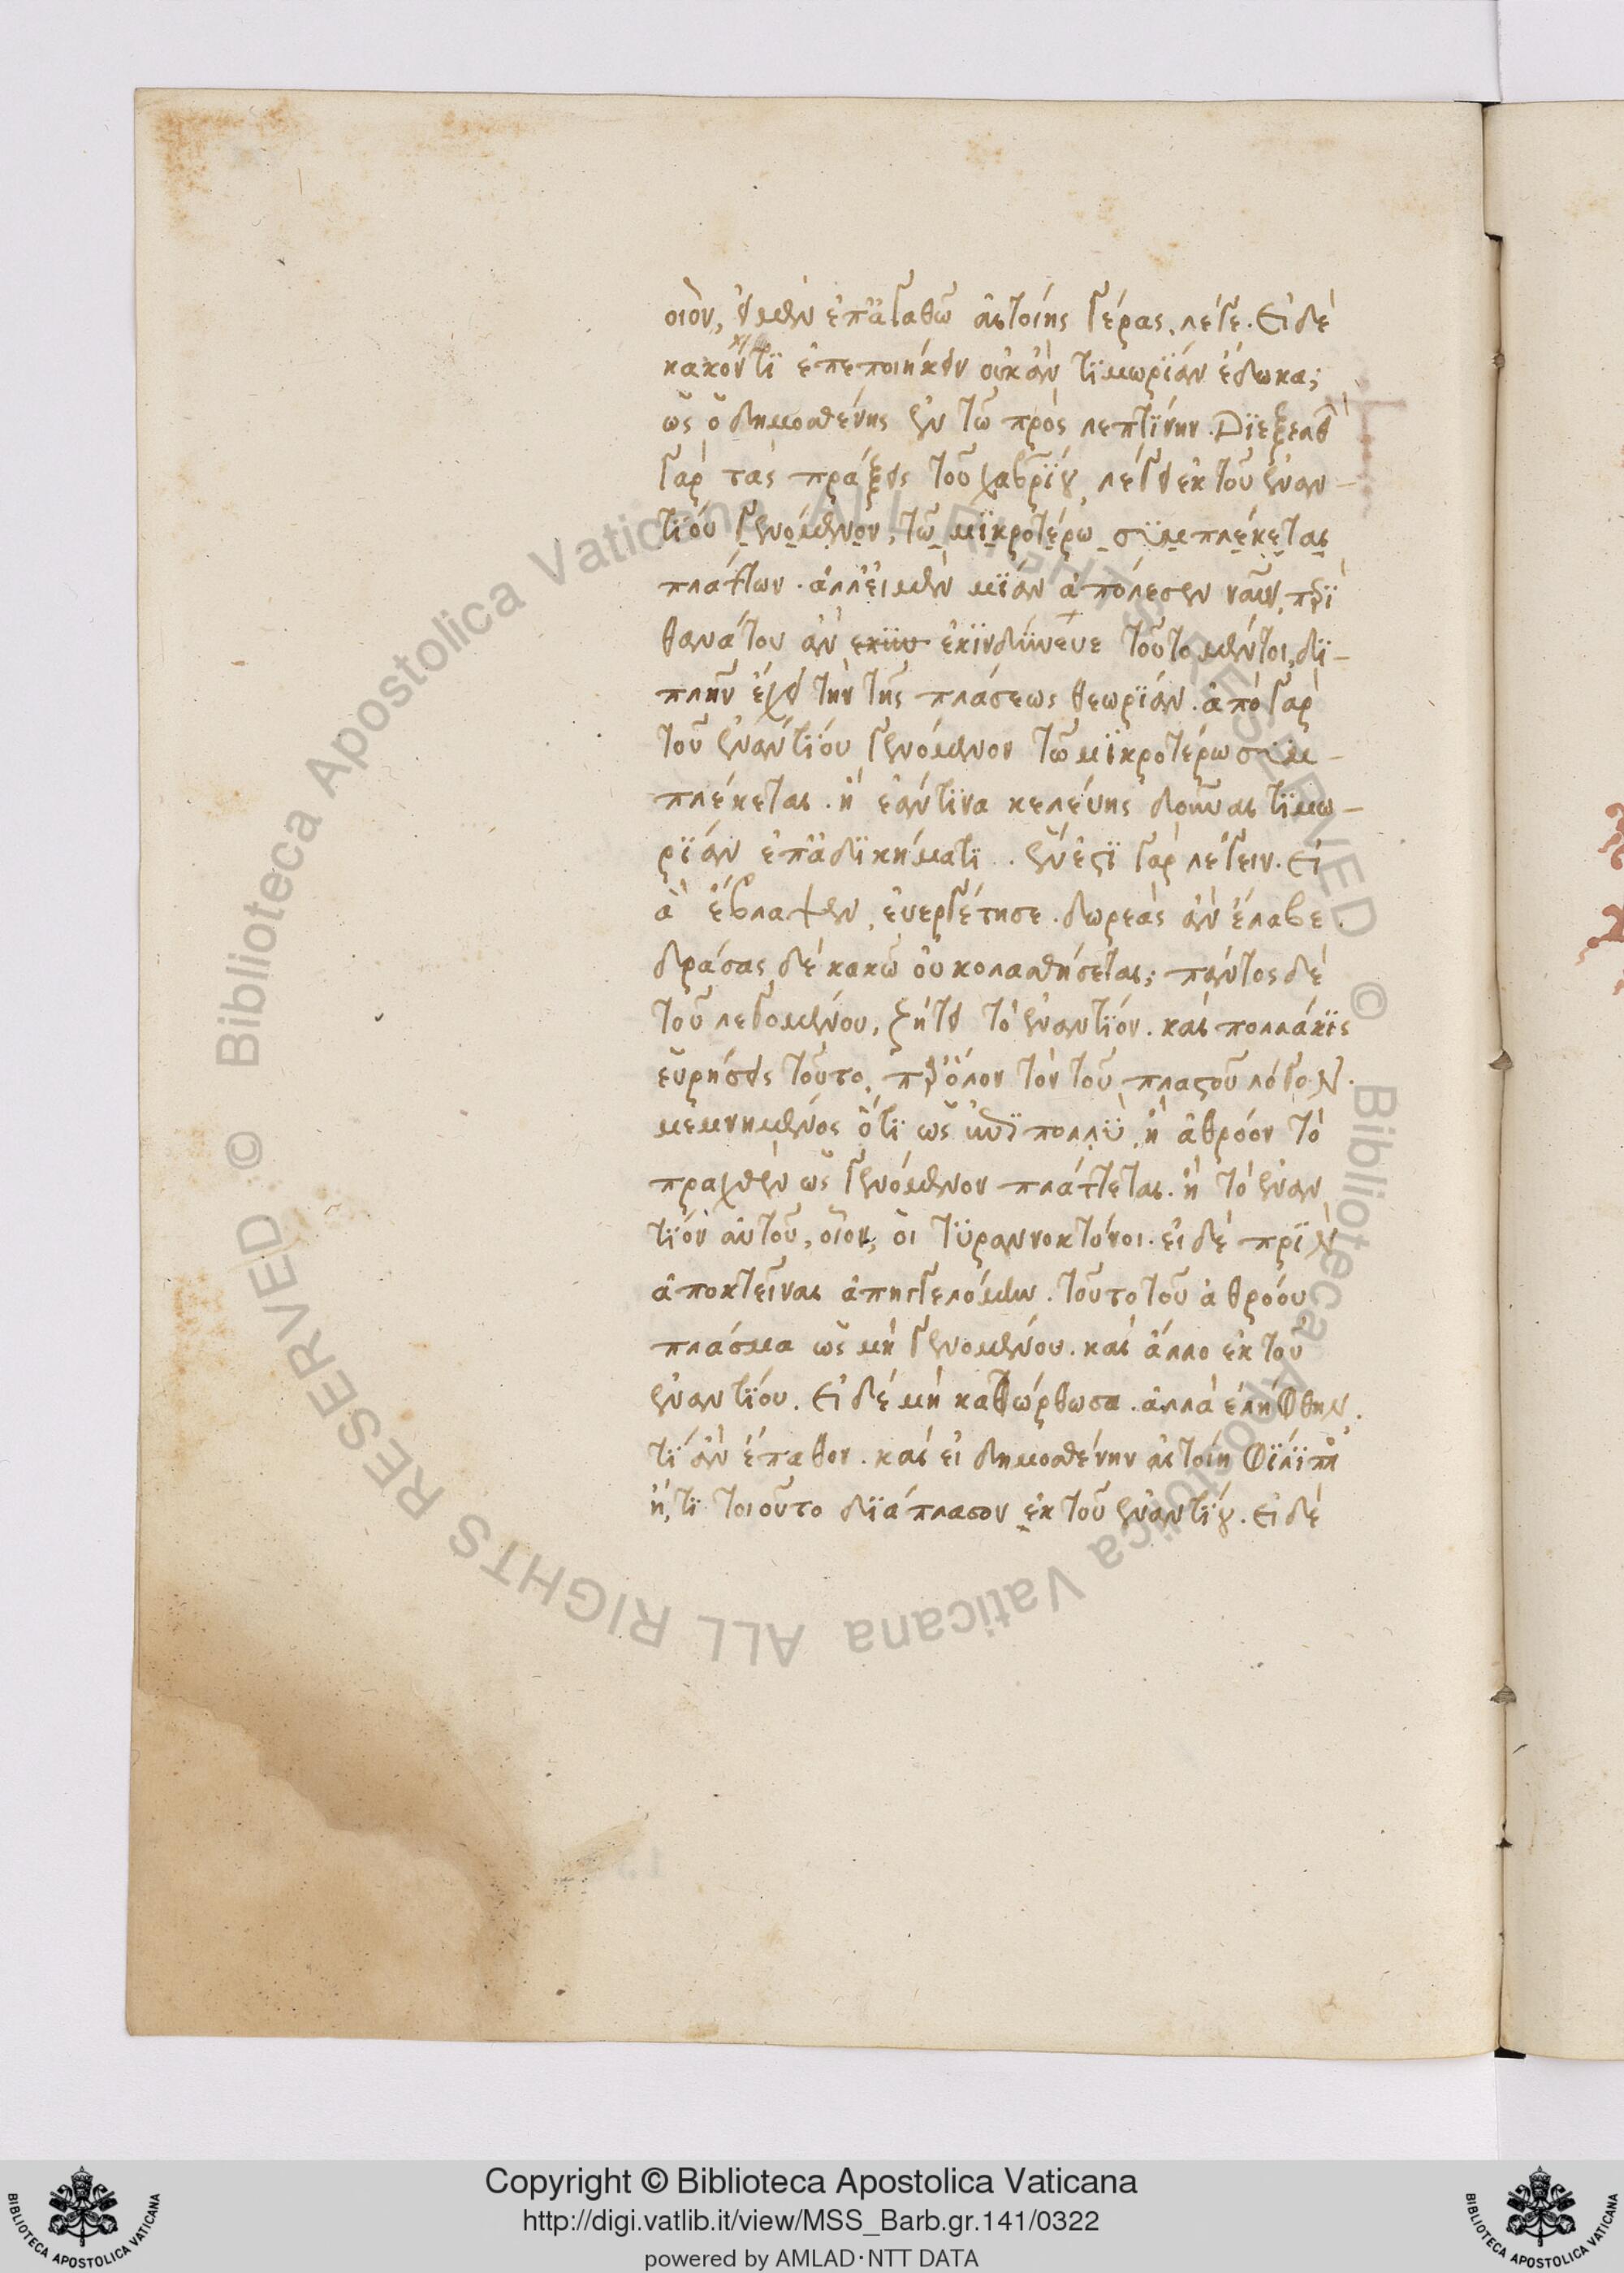 οἷον, εἰ μὲν ἐπ' ἀγαθῶ αἰτοίης γέρας, λέγε. Εἰ δὲ
κακόν τϊ ἐπεποιήκειν οὐκ ἂν τϊμωρΐαν ἔδωκα;
ὡς ὁ δημοσθένης ἐν τῶ πρὸς λεπτΐνην. Διεξελθ
γὰρ τὰς πράξεις τοῦ χαβρΐου, λέγει ἐκ τοῦ ἐναν-
τΐου γενόμενον, τῶ μϊκροτέρω συμπλέκεται
πλάττων. ἀλλ' εἰ μὲν μΐαν ἀπόλεσεν ναῦν, περὶ
θανάτου ἂν ἐκϊνδΰνευε τοῦτο μέντοι, δϊ-
πλῆν ἔχει τὴν τῆς πλάσεως θεωρΐαν. ἀπὸ γὰρ
τοῦ ἐναντΐου γενόμενον τῶ μϊκροτέρω συμ-
πλέκεται. ἢ ἐάν τϊνα κελεύης δοῦναι τϊμω-
ρΐαν ἐπ' ἀδϊκήματϊ. ἔνεστϊ γὰρ λέγειν. Εἰ
ἃ ἔβλαψεν, εὐεργέτησε. δωρεὰς ἂν ἔλαβε.
δράσας δὲ κακῶ οὐ κολασθήσεται; παντὸς δὲ
τοῦ λεγομένου, ζήτει τὸ ἐναντΐον. καὶ πολλάκϊς
εὑρήσεις τοῦτο, περὶ ὅλον τὸν τοῦ πλαστοῦ λόγον.
μεμνημένος ὅτϊ ὡς ἐπὶ πολλὺ, ἢ ἀθρόον τὸ
πραχθὲν ὡς γενόμενον πλάττεται. ἢ τὸ ἐναν
τΐον αὐτοῦ, οἷον, οἱ τϋραννοκτόνοι. εἰ δὲ πρὶν
ἀποκτεῖναι ἀπηγγελόμην. τοῦτο τοῦ ἀθρόου
πλάσμα ὡς μὴ γενομένου. καὶ ἄλλο ἐκ τοῦ
ἐναντΐου. Εἰ δὲ μὴ κατώρθωσα. ἀλλὰ ἐλήφθην.
τΐ ἂν ἔπαθον. καὶ εἰ δημοσθένην αἰτοίη Φΐλϊππος
ἤ, τϊ τοιοῦτο δϊάπλασον ἐκ τοῦ ἐναντΐου. Εἰ δὲ
Copyright © Biblioteca Apostolica Vaticana
http://digi.vatlib.it/view/MSS_Barb.gr.141/0322
powered by AMLAD·NTT DATA
BIBLIOTECA APOSTOLICA VATICANA
BIBLIOTECA APOSTOLICA VATICANA
© Biblioteca Apostolica Vaticana ALL RIGHTS RESERVED © Biblioteca Apostolica Vaticana ALL RIGHTS RESERVED